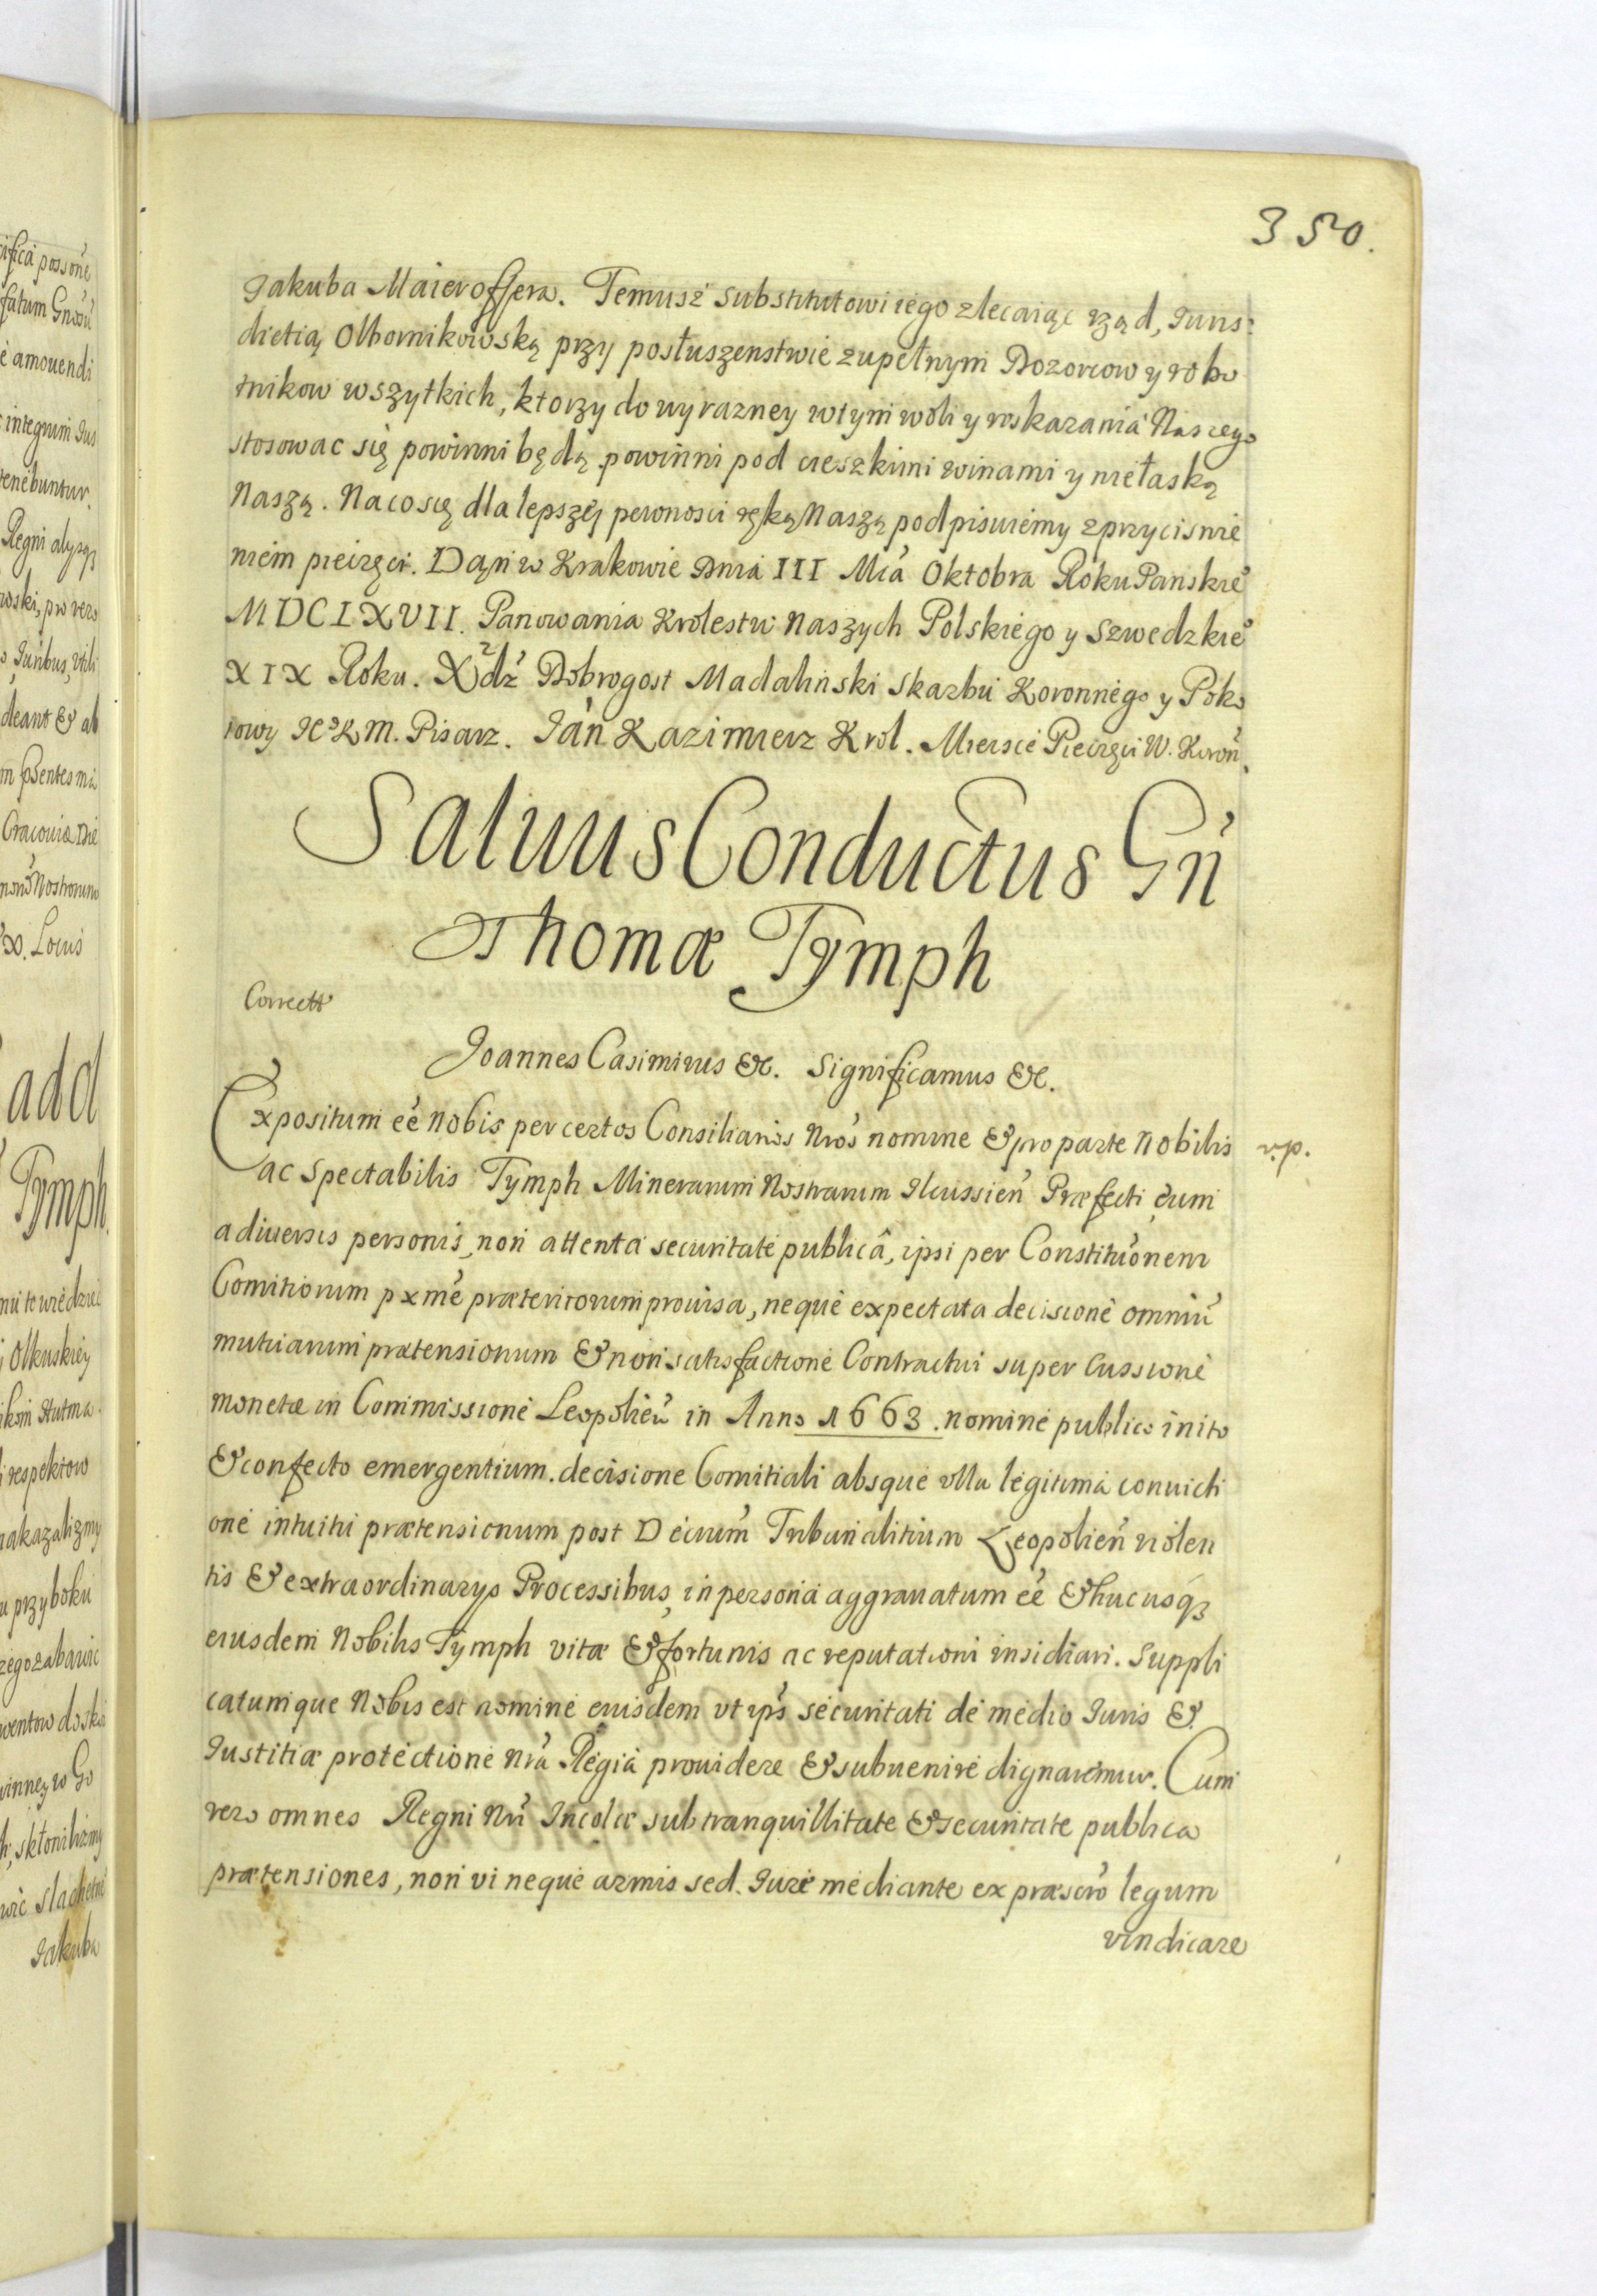 350.
Jakuba Maieroffera. Temusż substitutowi iego zlecaiąc rząd, Juris:
dictią Olbornikowską przy posłuszenstwie zupełnym Dozorcow y robo
tnikow wszytkich, ktorzy do wyrazney wtym woli y roskazania Naszego
stosowac się powinni będą powinni pod cieszkimi winami y niełaską
Naszą. Nacosię dla lepszej pewnosci ręką Naszą podpisuiemy zprzycisnie
niem pieczęci. Dąn w Krakowie Dnia III Mca Oktobra Roku Panskie
MDCLXVII. Panowania Krolestw Naszych Polskiego y Szwedzkie
XIX Roku. Xdz Dobrogost Madaliński Skarbu Koronnego y Poko
iowy JeKM. Pisarz. Ján Kazimierz Krol. Mieisce Pieczęci W. Koron.
Saluus Conductus Gn
Thomæ Tymph
Correctt
Joannes Casimirus &c. Significamus &c.
Expositum eé Nobis per certos Consiliarios Nros nomine & pro parte Nobilis
v.p.
ac Spectabilis Tymph Minerarum Nostrarum Ilcussien Præfecti eum
a diuersis personis, non attenta securitate publicâ, ipsi per Constitutionem
Comitiorum pxme præteritorum prouisa, neque expectata decisione omniu
mutuarum prætensionum & non satisfactione Contractui super Cussione
monetæ in Commissione Leopolien in Anno 1663. nomine publico inito
& confecto emergentium. decisione Comitiali absque vlla legitima conuicti
one intuitu prætensionum post Decrum Tribunalitium Leopolien violen
tis & extraordinarys Processibus, in persona aggrauatum eé & hucusqꝫ
eiusdem Nobilis Tymph vitæ & fortunis ac reputationi insidiari. Suppli
catumque Nobis est nomine eiusdem vt ips securitati de medio Juris &
Justitiæ protectione Nra Regia prouidere & subuenire dignaremur. Cum
vero omnes Regni Nri Incolæ sub tranquillitate & securitate publica
prætensiones, non vi neque armis sed. Jure mediante ex præscro legum
vindicare